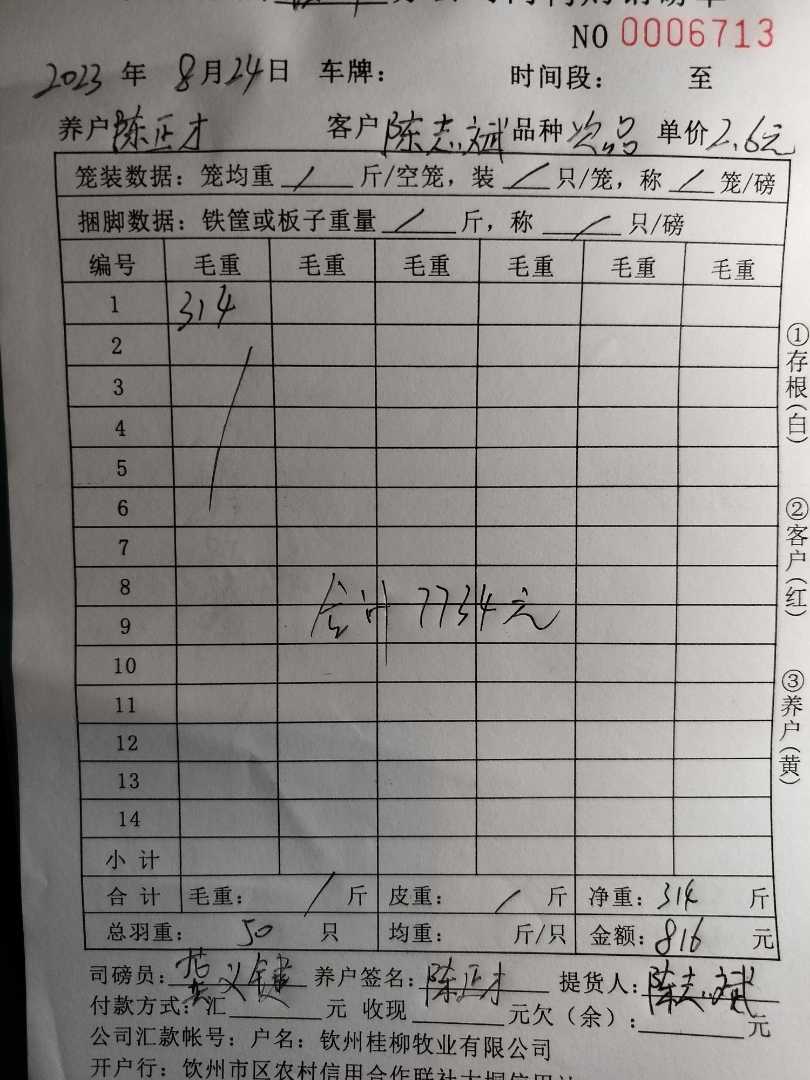 NO 0006713
2023 年 8月24日 车牌: 时间段: 至
养户陈正才 客户陈志斌 品种次品 单价2.6元
笼装数据: 笼均重 / 斤/空笼, 装 / 只/笼, 称 / 笼/磅
捆脚数据: 铁筐或板子重量 / 斤, 称 / 只/磅
编号 毛重 毛重 毛重 毛重 毛重 毛重
1 314
2
3
4
5
6
7
8
合计 7734元
9
10
11
12
13
14
小 计
合 计 毛重: / 斤 皮重: / 斤 净重: 314 斤
总羽重: 50 只 均重: 斤/只 金额: 816 元
司磅员: 义 养户签名: 陈正才 提货人: 陈志斌
付款方式: 汇 元 收现 元欠(余): 元
公司汇款帐号: 户名: 钦州桂柳牧业有限公司
开户行: 钦州市区农村信用合作联社大垌信用社
①存根(白)
②客户(红)
③养户(黄)